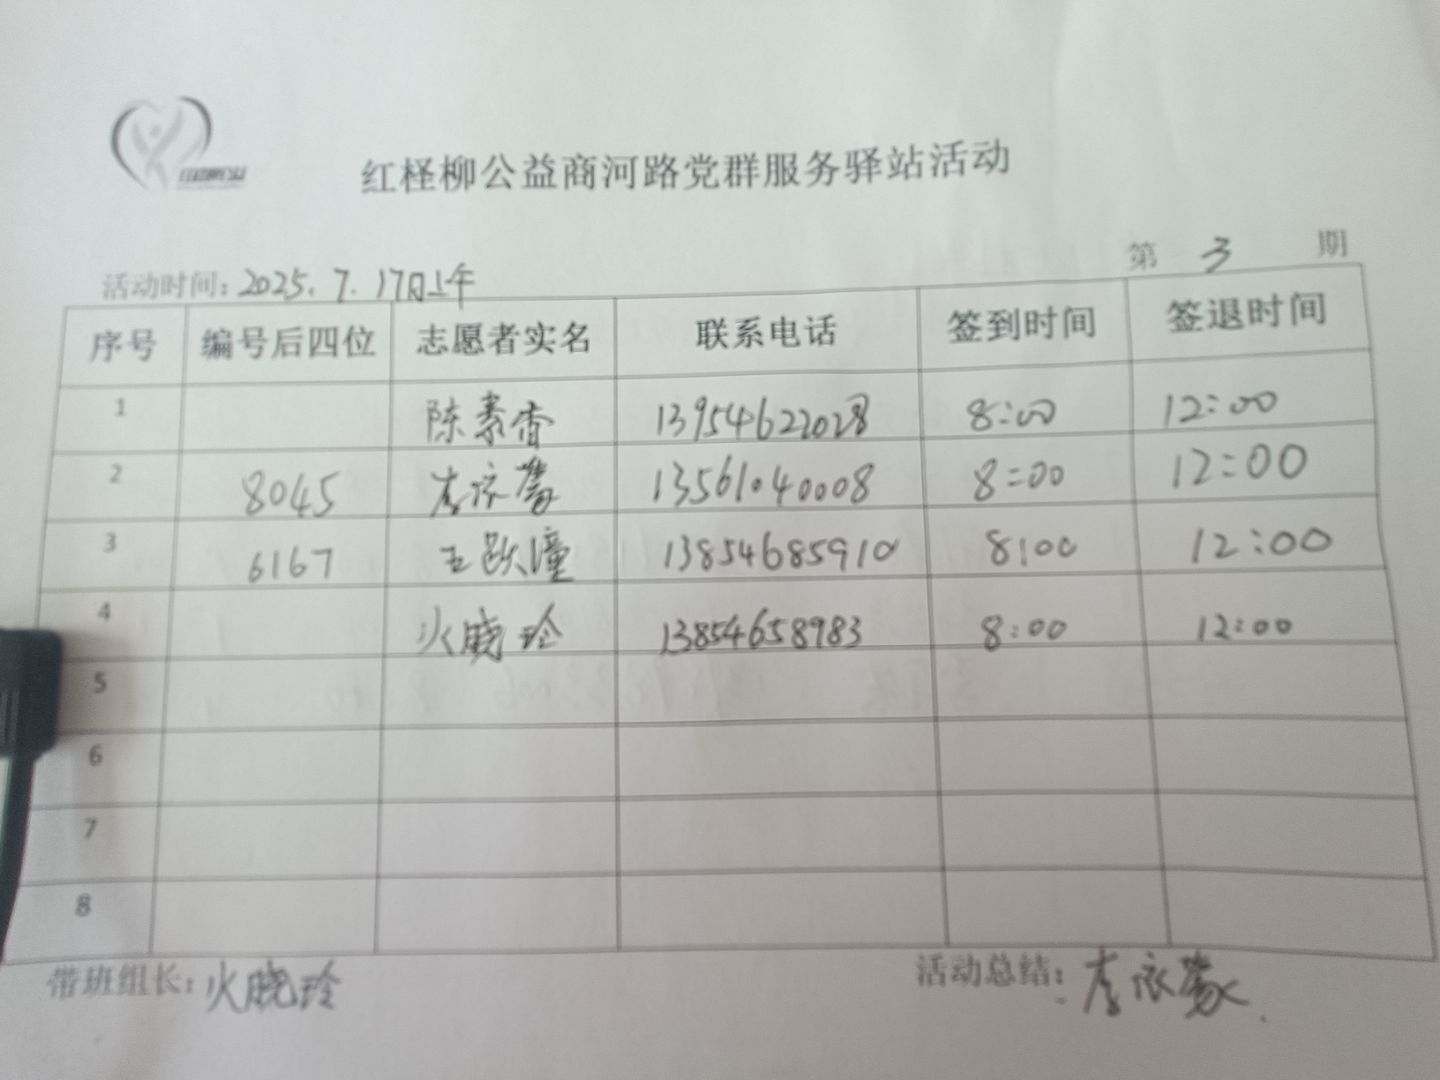 红柽柳公益商河路党群服务驿站活动
第 3 期
活动时间: 2025. 7. 17日上午
序号 编号后四位 志愿者实名 联系电话 签到时间 签退时间
1 陈素香 13954622028 8:00 12:00
2 8045 李依蔓 13561040008 8:00 12:00
3 6167 王跃潼 13854685910 8:00 12:00
4 火晓玲 13854658983 8:00 12:00
5
6
7
8
带班组长: 火晓玲 活动总结: 李依蔓